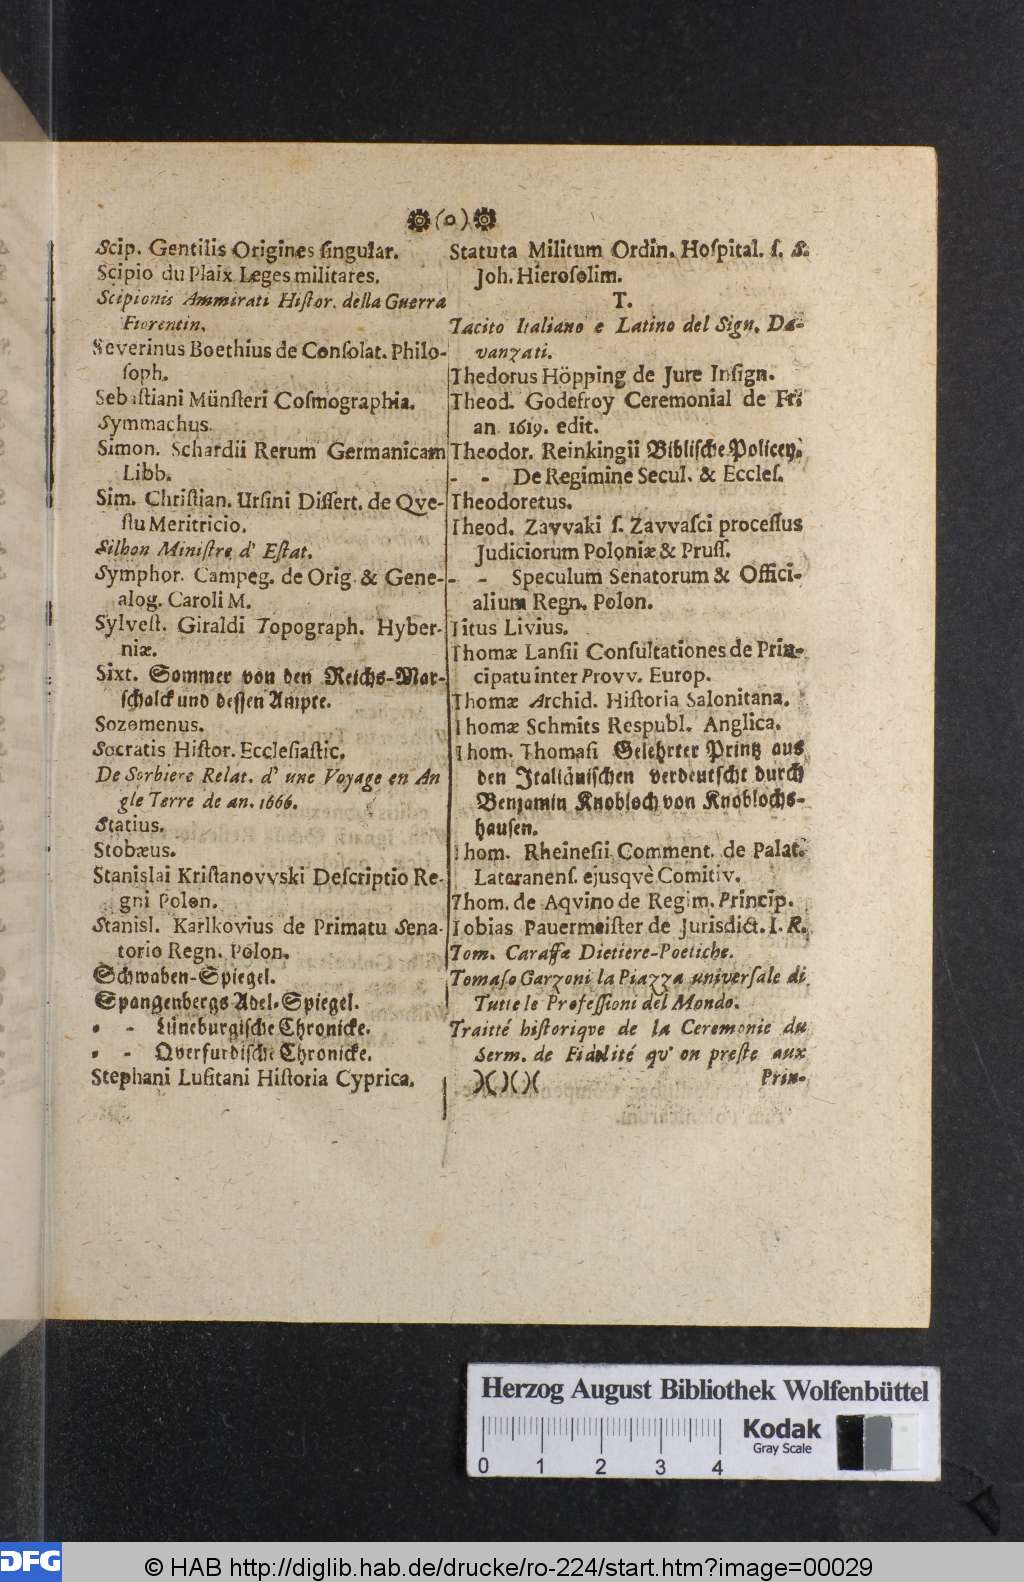 (o)
Scip. Gentilis Origines ſingular.
Scipio du Plaix Leges militares.
Scipionis Ammirati Hiſtor. della Guerra
Fiorentin.
Severinus Boethius de Conſolat. Philo-
ſoph.
Sebaſtiani Münſteri Coſmographia.
Symmachus.
Simon. Schardii Rerum Germanicam
Libb.
Sim. Chriſtian. Urſini Diſſert. de Qve-
ſtu Meritricio.
Silhon Miniſtre d' Eſtat.
Symphor. Campeg. de Orig. & Gene-
alog. Caroli M.
Sylveſt. Giraldi Topograph. Hyber-
niæ.
Sixt. Sommer von den Reichs-Mar-
ſchalck und deſſen Ampte.
Sozomenus.
Socratis Hiſtor. Eccleſiaſtic.
De Sorbiere Relat. d' une Voyage en An
gle Terre de an. 1666.
Statius.
Stobæus.
Stanislai Kriſtanovvski Deſcriptio Re-
gni Polon.
Stanisl. Karlkovius de Primatu Sena-
torio Regn. Polon.
Schwaben-Spiegel.
Spangenbergs Adel-Spiegel.
- - Lüneburgiſche Chronicke.
- - Qverfurdiſche Chronicke.
Stephani Luſitani Hiſtoria Cyprica.
Statuta Militum Ordin. Hoſpital. ſ. S.
Joh. Hieroſolim.
T.
Tacito Italiano e Latino del Sign. Da-
vanzati.
Thedorus Höpping de Jure Inſign.
Theod. Godefroy Ceremonial de Fri
an 1619. edit.
Theodor. Reinkingii Bibliſche Policey.
- - De Regimine Secul. & Eccleſ.
Theodoretus.
Theod. Zavvaki ſ. Zavvaſci proceſſus
Judiciorum Poloniæ & Pruſſ.
- - Speculum Senatorum & Offici-
alium Regn. Polon.
Titus Livius.
Thomæ Lanſii Conſultationes de Prin-
cipatu inter Provv. Europ.
Thomæ Archid. Hiſtoria Salonitana.
Thomæ Schmits Respubl. Anglica.
Thom. Thomaſi Gelehrter Printz aus
den Italiäniſchen verdeutſcht durch
Benjamin Knobloch von Knoblochs-
hauſen.
Thom. Rheineſii Comment. de Palat.
Lateranenſ. ejusqvè Comitiv.
Thom. de Aqvino de Regim. Princip.
Tobias Pauermeiſter de Jurisdict. I. R.
Tom. Caraffæ Dietiere-Poetiche.
Tomaſo Garzoni la Piazza univerſale di
Tutte le Profeſſioni del Mondo.
Traitté hiſtoriqve de la Ceremonie du
Serm. de Fidelité qu' on preſte aux
)()()(
Prin-
Herzog August Bibliothek Wolfenbüttel
Kodak
Gray Scale
0 1 2 3 4
DFG
© HAB http://diglib.hab.de/drucke/ro-224/start.htm?image=00029